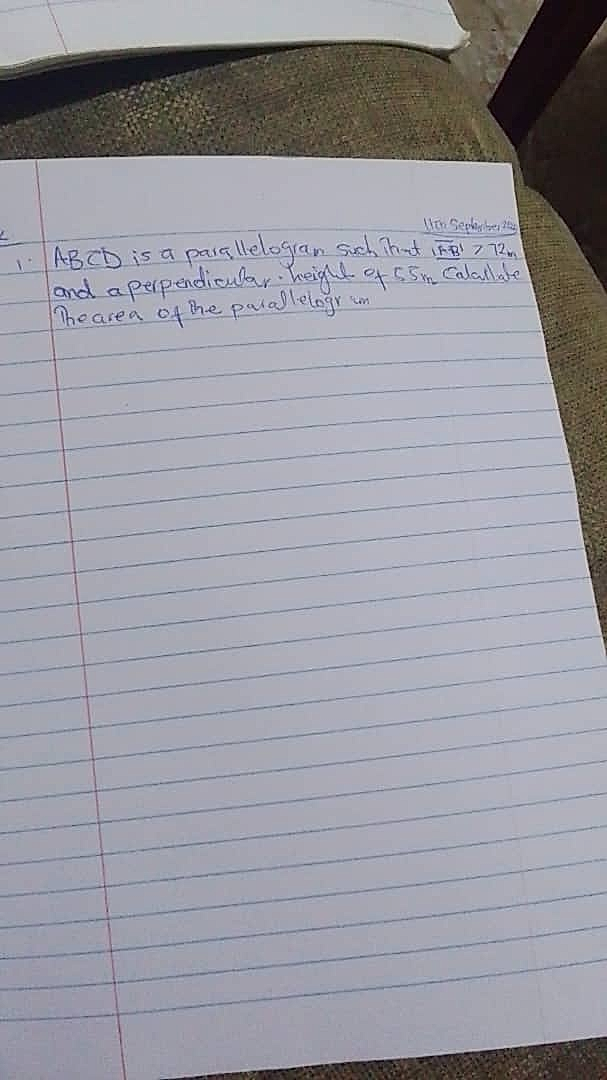 11th September
1. ABCD is a parallelogram such that |AB| > 72m
and a perpendicular height of 55m Calculate
The area of the parallelogram